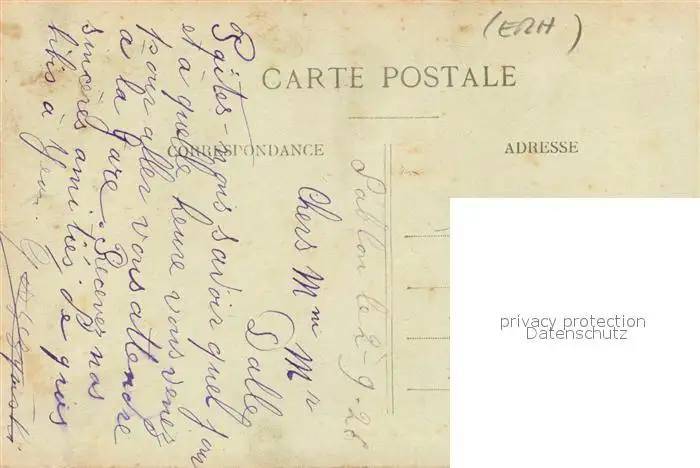 (ERH)
CARTE POSTALE
CORRESPONDANCE
ADRESSE
Sablon le 2-9-28
Chers Mm Mr
Dalle
Faites-nous savoir quel jour
et à quelle heure vous venez
pour aller vous attendre
a la gare. Recevez nos
sincères amitiés de
tits à
privacy protection
Datenschutz